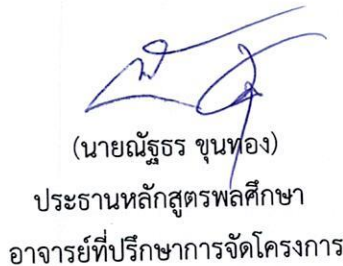 (นายณัฐธร ขุนทอง)
ประธานหลักสูตรพลศึกษา
อาจารย์ที่ปรึกษาการจัดโครงการ